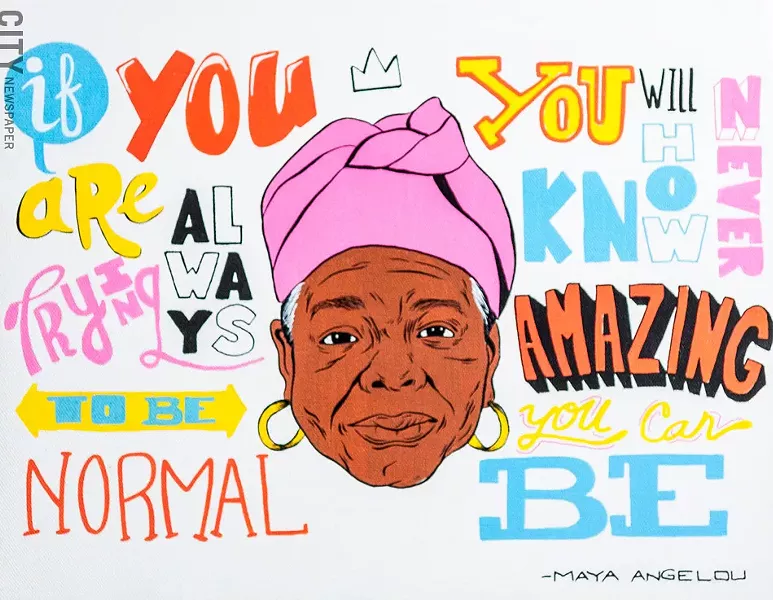 CITY NEWSPAPER
if YOU
ARe ALWAYS
TRYING
TO BE
NORMAL
YOU WILL NEVER
KNOW HOW
AMAZING
you Can
BE
-MAYA ANGELOU